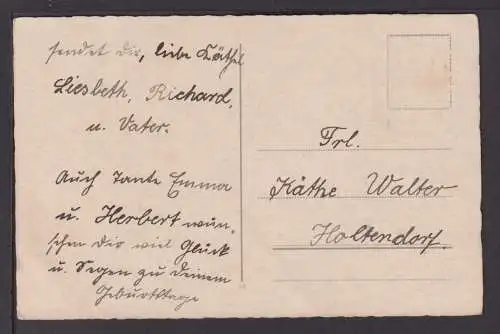 sendet Dir, liebe Käthe
Liesbeth, Richard,
u. Vater.
Auch Tante Emma
u. Herbert wün-
schen Dir viel Glück
u. Segen zu deinem
Geburtstage
Frl.
Käthe Walter
Holtendorf.